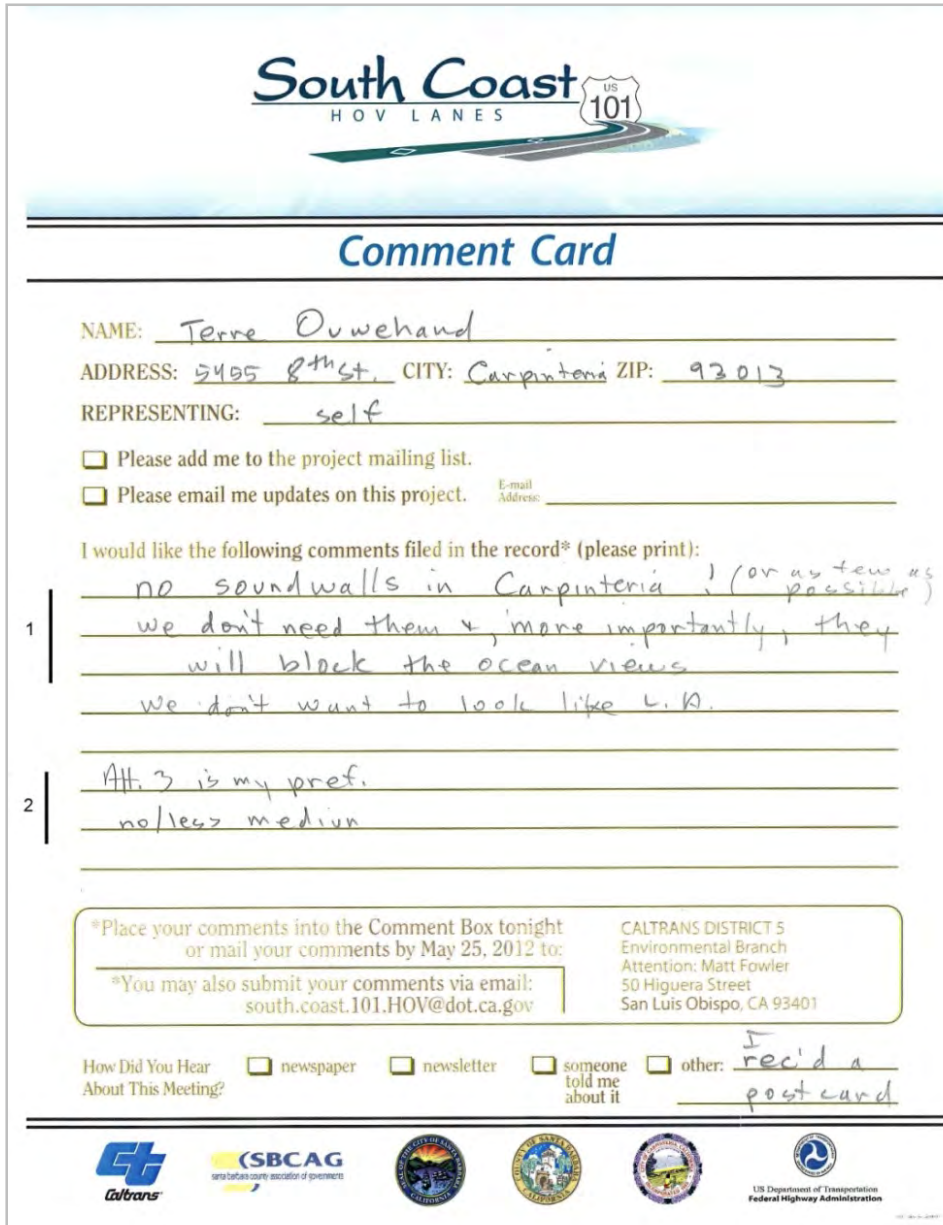 South Coast
HOV LANES
US
101
Comment Card
NAME: Terre Ouwehand
ADDRESS: 5455 8th St. CITY: Carpinteria ZIP: 93013
REPRESENTING: self
Please add me to the project mailing list.
Please email me updates on this project. E-mail Address:
I would like the following comments filed in the record* (please print):
no soundwalls in Carpinteria ! (or as few as possible)
1
we don't need them &, more importantly, they
will block the ocean views
we don't want to look like L.A.
2
Alt. 3 is my pref.
no/less mediun
*Place your comments into the Comment Box tonight
or mail your comments by May 25, 2012 to:
*You may also submit your comments via email:
south.coast.101.HOV@dot.ca.gov
CALTRANS DISTRICT 5
Environmental Branch
Attention: Matt Fowler
50 Higuera Street
San Luis Obispo, CA 93401
How Did You Hear
About This Meeting?
newspaper
newsletter
someone
told me
about it
other: I rec'd a
postcard
Caltrans
SBCAG
santa barbara county association of governments
US Department of Transportation
Federal Highway Administration